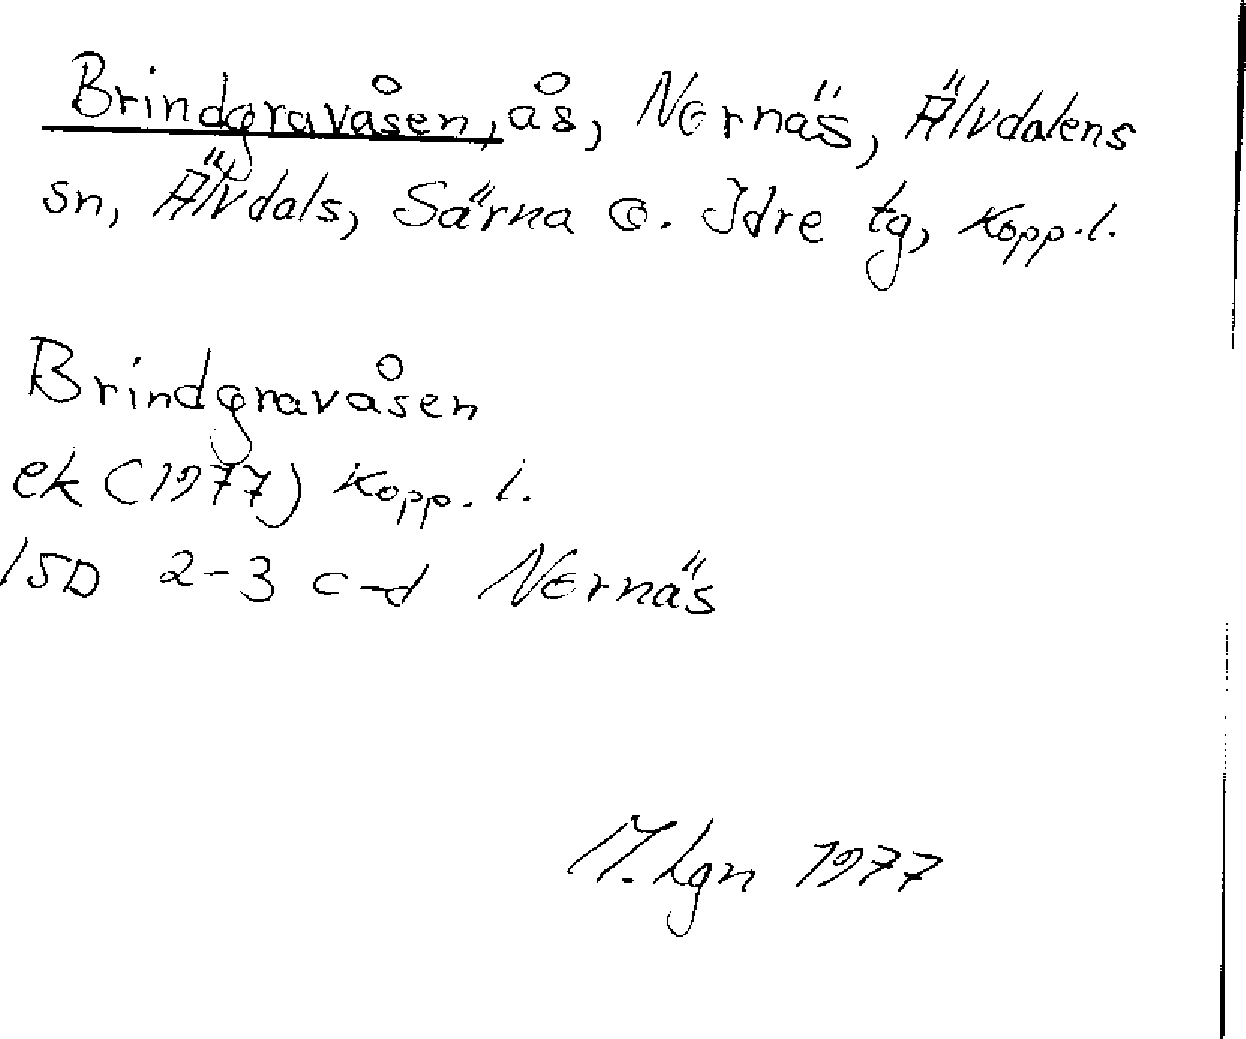 Brindgravåsen, ås, Nornäs, Älvdalens
sn, Älvdals, Särna o. Idre tg, Kopp.l.
Brindgravåsen
ek (1977) Kopp. l.
15D 2-3 c-d Nornäs
M. Lgn 1977